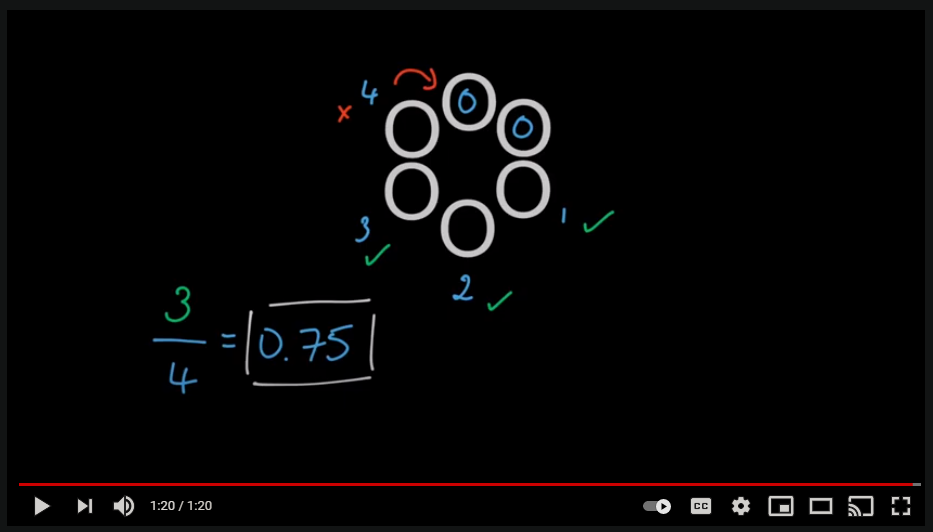 x 4
0
0
1 ✓
3 ✓
2 ✓
3/4 = 0.75
1:20 / 1:20
CC